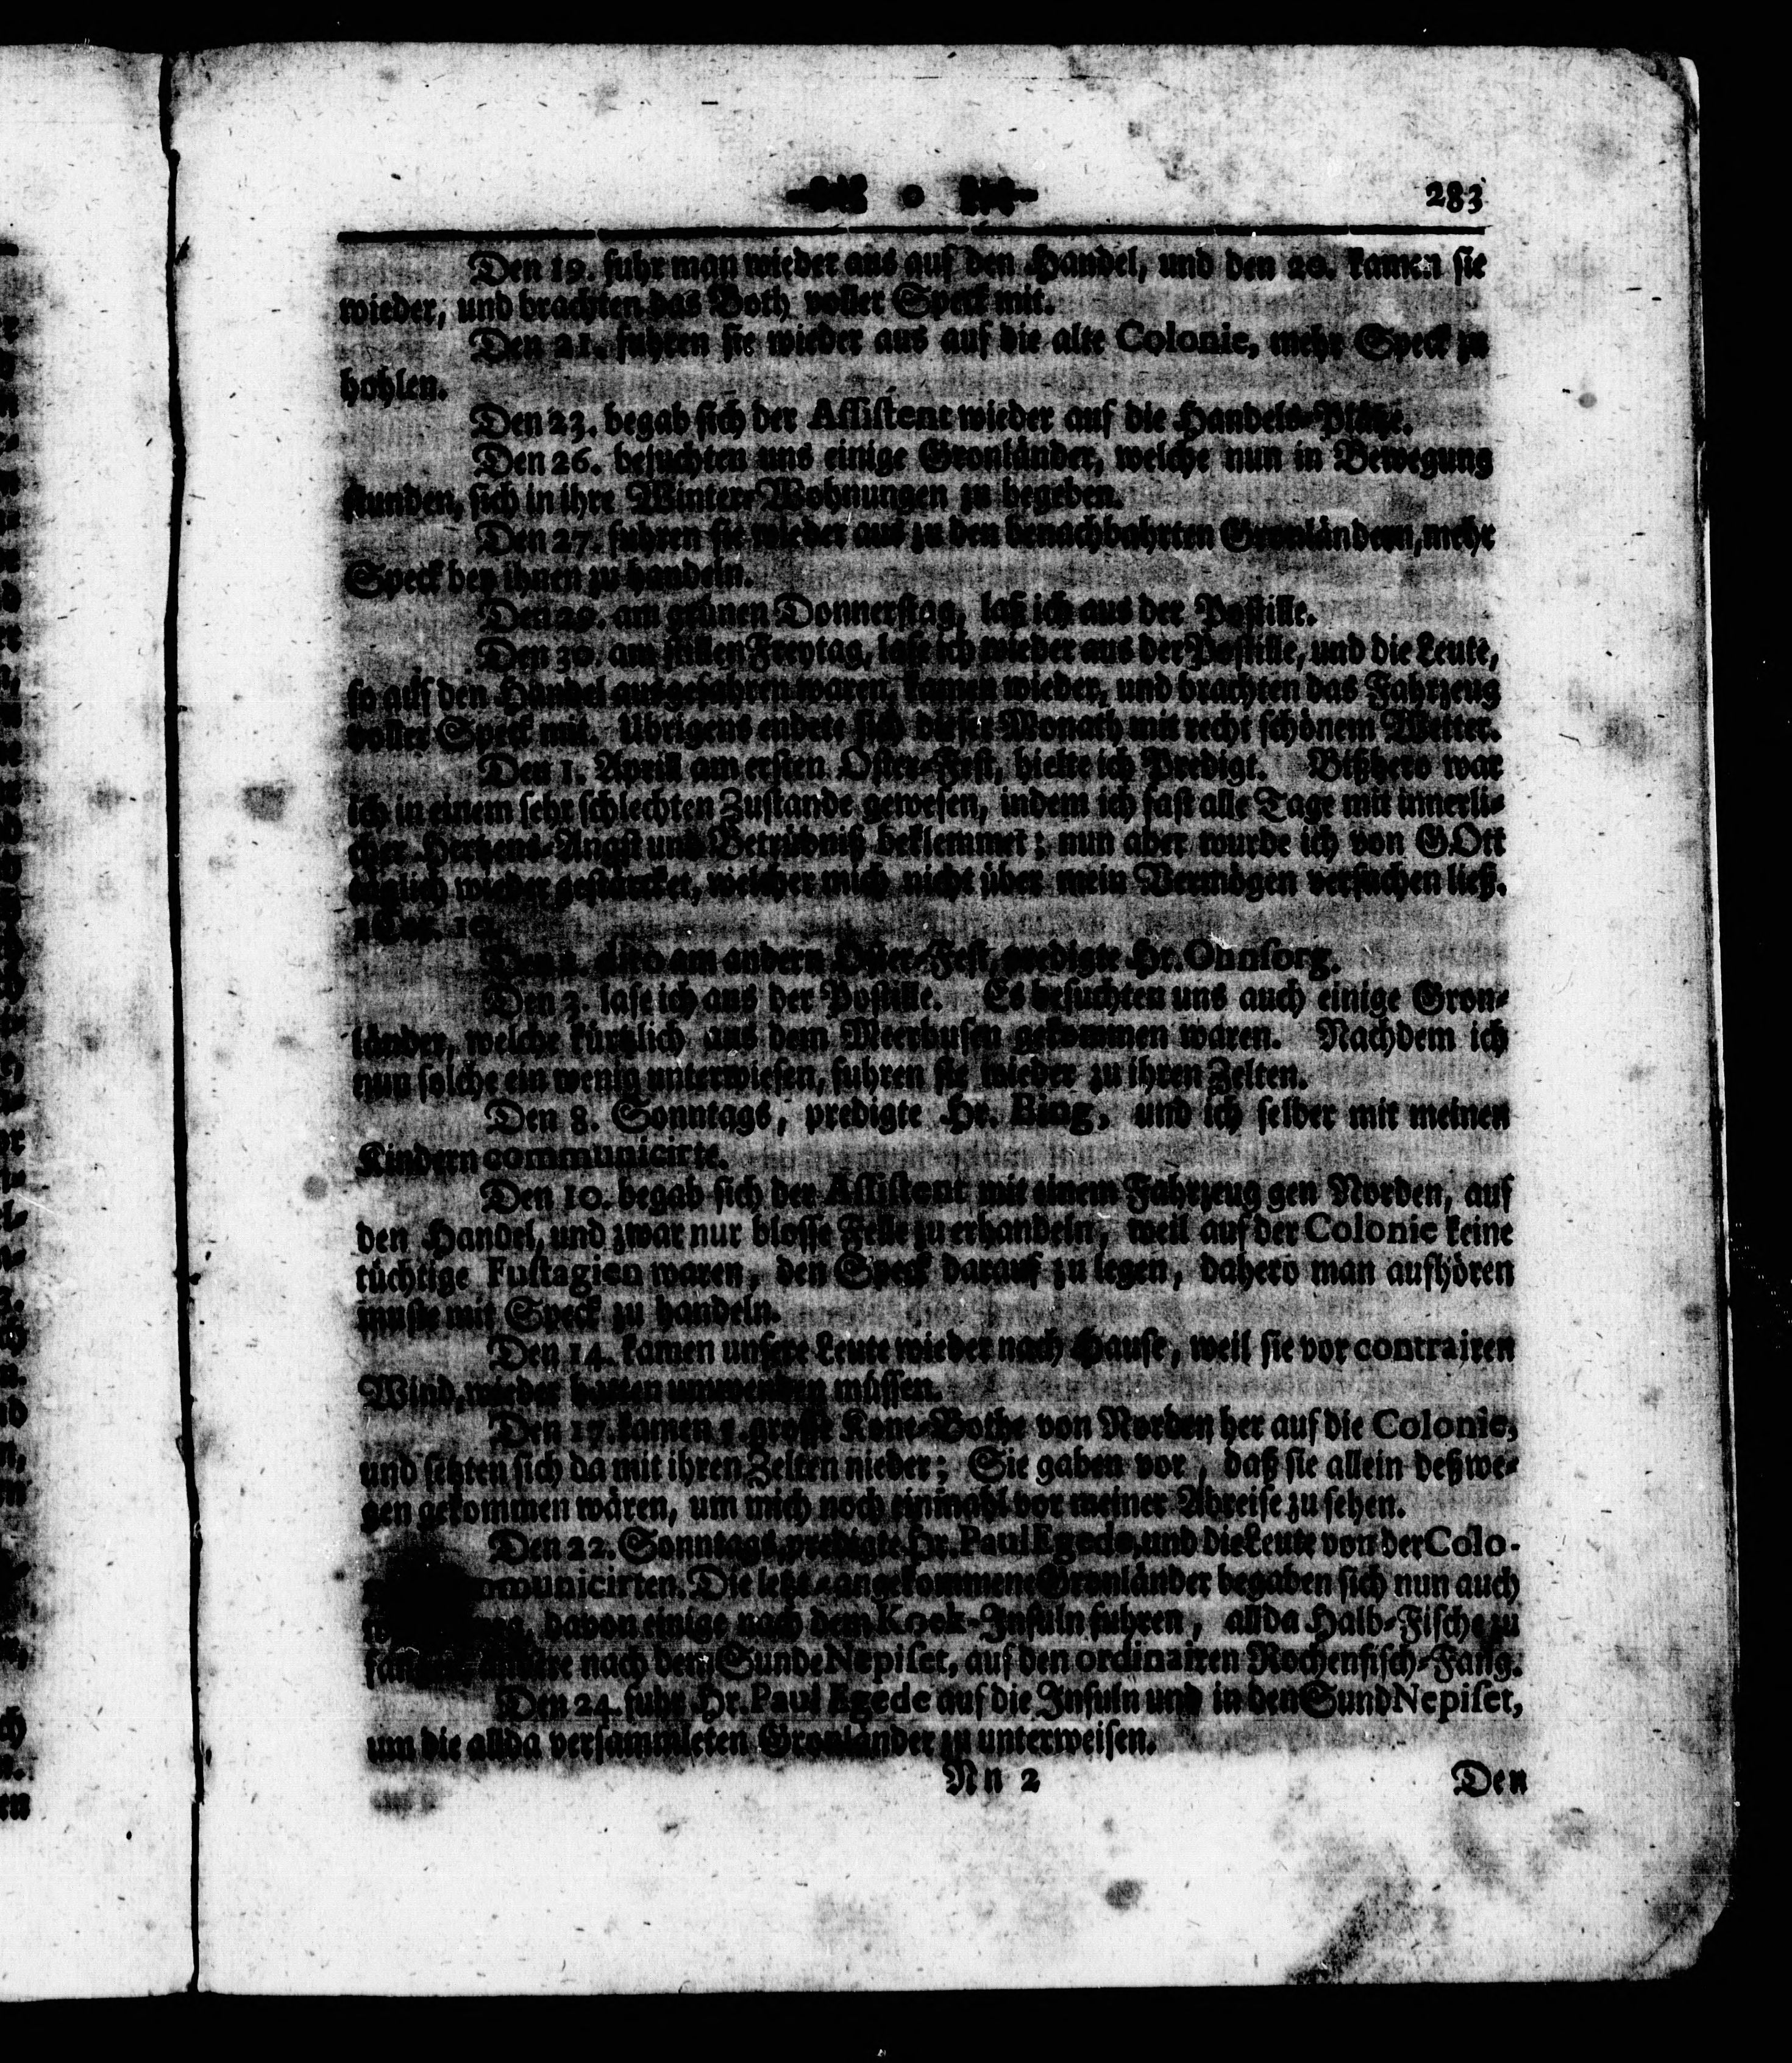 283
Den 19. fuhr man wieder aus auf den Handel, und den 20. kamen sie
wieder, und brachten das Both voller Speck mit.
Den 21. fuhren sie wieder aus auf die alte Colonie, mehr Speck zu
hohlen.
Den 23. begab sich der Assistent wieder auf die Handels-Plätze.
Den 26. besuchten uns einige Gronländer, welche nun in Bewegung
stunden, sich in ihre Winter-Wohnungen zu begeben.
Den 27. fuhren sie wieder aus zu den benachbahrten Gronländern, mehr
Speck bey ihnen zu handeln.
Den 29. am grünen Donnerstag, laß ich aus der Postille.
Den 30. am stillen Freytag, lase ich wieder aus der Postille, und die Leute,
so auf den Handel ausgefahren waren, kamen wieder, und brachten das Fahrzeug
voller Speck mit. Ubrigens endete sich dieser Monath mit recht schönem Wetter.
Den 1. Aprill am ersten Oster-Fest, hielte ich Predigt. Bißhero war
ich in einem sehr schlechten Zustande gewesen, indem ich fast alle Tage mit innerli-
cher Hertzens-Angst und Betrübniß beklemmet; nun aber wurde ich von GOtt
wieder gestärcket, welcher mich nicht über mein Vermögen versuchen ließ.
1 Cor. 10.
Den 2. am andern Oster-Fest, predigte Hr. Ohnsorg.
Den 3. lase ich aus der Postille. Es besuchten uns auch einige Gron-
länder, welche kürtzlich aus dem Meerbusen gekommen waren. Nachdem ich
nun solche ein wenig unterwiesen, fuhren sie wieder zu ihren Zelten.
Den 8. Sonntags, predigte Hr. Bing, und ich selber mit meinen
Kindern communicirte.
Den 10. begab sich der Assistent mit einem Fahrzeug gen Norden, auf
den Handel, und zwar nur blosse Felle zu erhandeln, weil auf der Colonie keine
tüchtige Fustagien waren, den Speck darauf zu legen, dahero man aufhören
muste mit Speck zu handeln.
Den 14. kamen unsere Leute wieder nach Hause, weil sie vor contrairen
Wind, wieder hatten umwenden müssen.
Den 17. kamen grosse Kone-Bothe von Norden her auf die Colonie,
und setzten sich da mit ihren Zelten nieder; Sie gaben vor, daß sie allein deßwe-
gen gekommen wären, um mich noch einmahl vor meiner Abreise zu sehen.
Den 22. Sonntags, predigte Hr. Paul Egede, und die Leute von der Colo-
communicirten. Die letzt angekommene Gronländer begaben sich nun auch
davon einige nach dem Kook-Insuln fuhren, allda Halb-Fische zu
fangen, andere nach dem Sunde Nepiset, auf den ordinairen Rochenfisch-Fang.
Den 24. fuhr Hr. Paul Egede auf die Insuln und in den Sund Nepiset,
um die allda versammleten Gronländer zu unterweisen.
Nn 2 Den